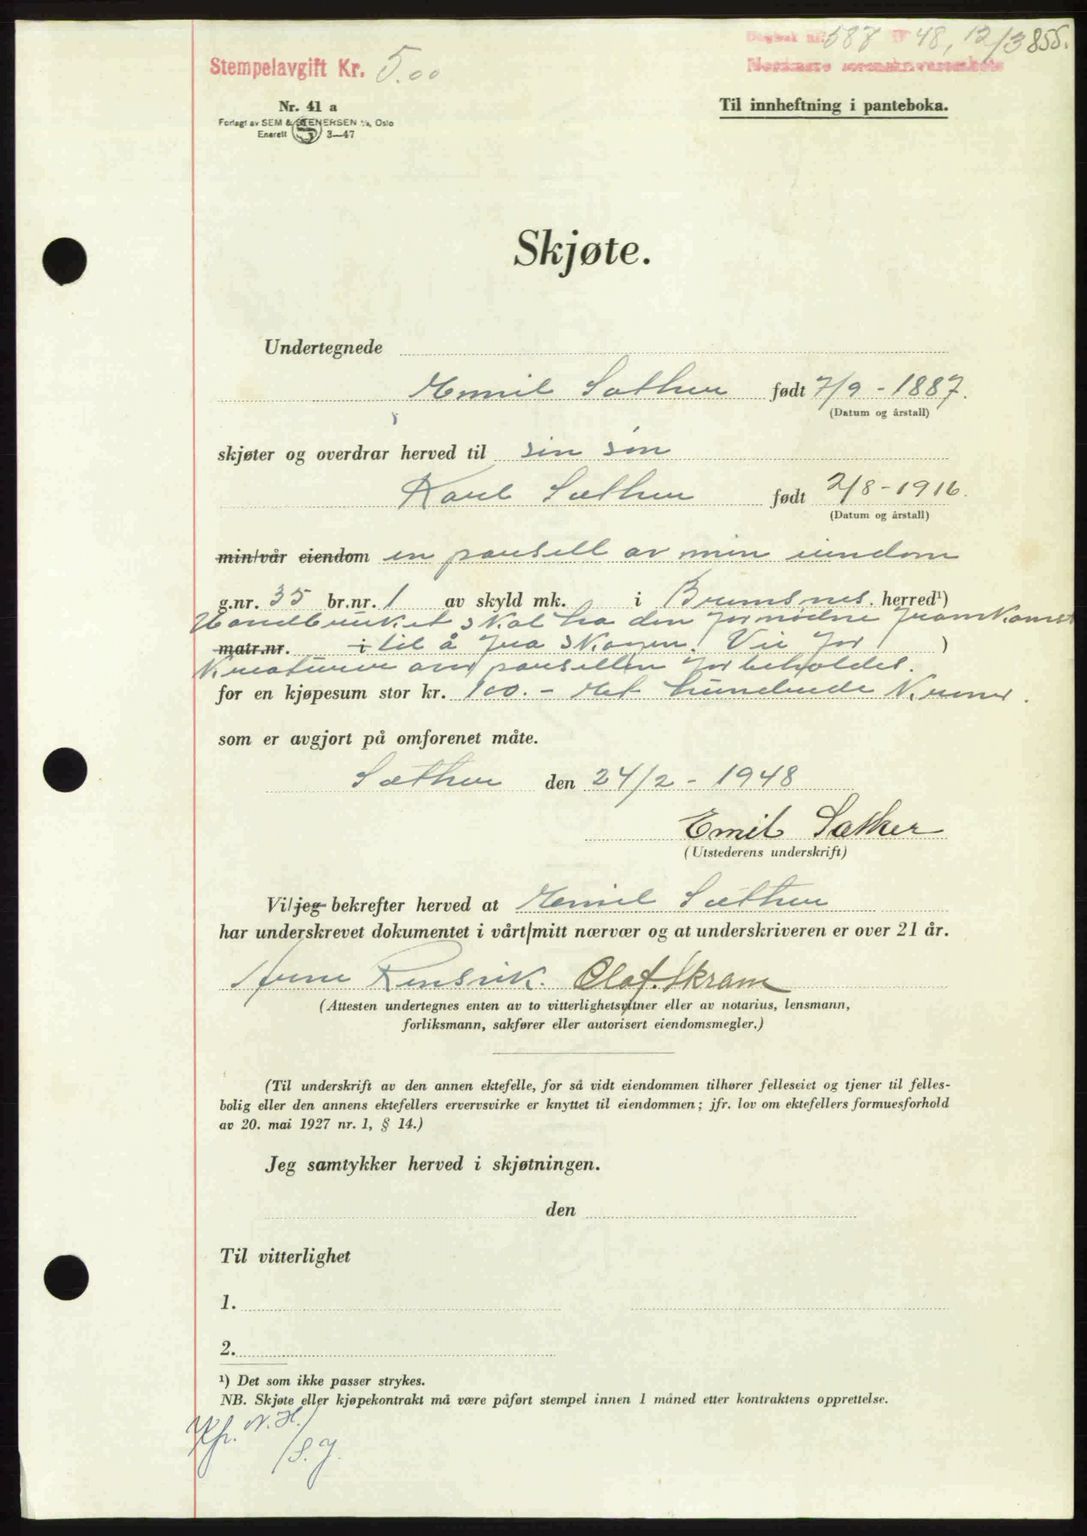 Dagbok nr. 587 19 48, 12/3 855.
Stempelavgift Kr. 5.00
Nordmøre sorenskriverembete
Nr. 41 a
Til innheftning i panteboka.
Forlagt av SEM & STENERSEN A/s, Oslo
Enerett 5 3—47
Skjøte.
Undertegnede
Emil Sæther født 7/9 - 1887.
(Datum og årstall)
skjøter og overdrar herved til sin søn
Karl Sæther født 2/8 - 1916.
(Datum og årstall)
min/vår eiendom en parsell av min eiendom
g.nr. 35 br.nr. 1 av skyld mk. i Bremsnes herred¹)
skal ha den fornødne framkomst
matr.nr. i til å fra skogen. Vei for )
Kreaturer over parsellen forbeholdes.
for en kjøpesum stor kr. 100.- et hundrede Kroner.
som er avgjort på omforenet måte.
Sæther den 24/2 - 1948
Emil Sæther
(Utstederens underskrift)
Vi/jeg bekrefter herved at Emil Sæther
har underskrevet dokumentet i vårt/mitt nærvær og at underskriveren er over 21 år.
Arne Rensvik. Olaf. Skram
(Attesten undertegnes enten av to vitterlighetsvitner eller av notarius, lensmann,
forliksmann, sakfører eller autorisert eiendomsmegler.)
(Til underskrift av den annen ektefelle, for så vidt eiendommen tilhører felleseiet og tjener til felles-
bolig eller den annens ektefellers ervervsvirke er knyttet til eiendommen; jfr. lov om ektefellers formuesforhold
av 20. mai 1927 nr. 1, § 14.)
Jeg samtykker herved i skjøtningen.
den
Til vitterlighet
1.
2.
¹) Det som ikke passer strykes.
NB. Skjøte eller kjøpekontrakt må være påført stempel innen 1 måned etter kontraktens opprettelse.
Kfr. N.H./
/S.J.